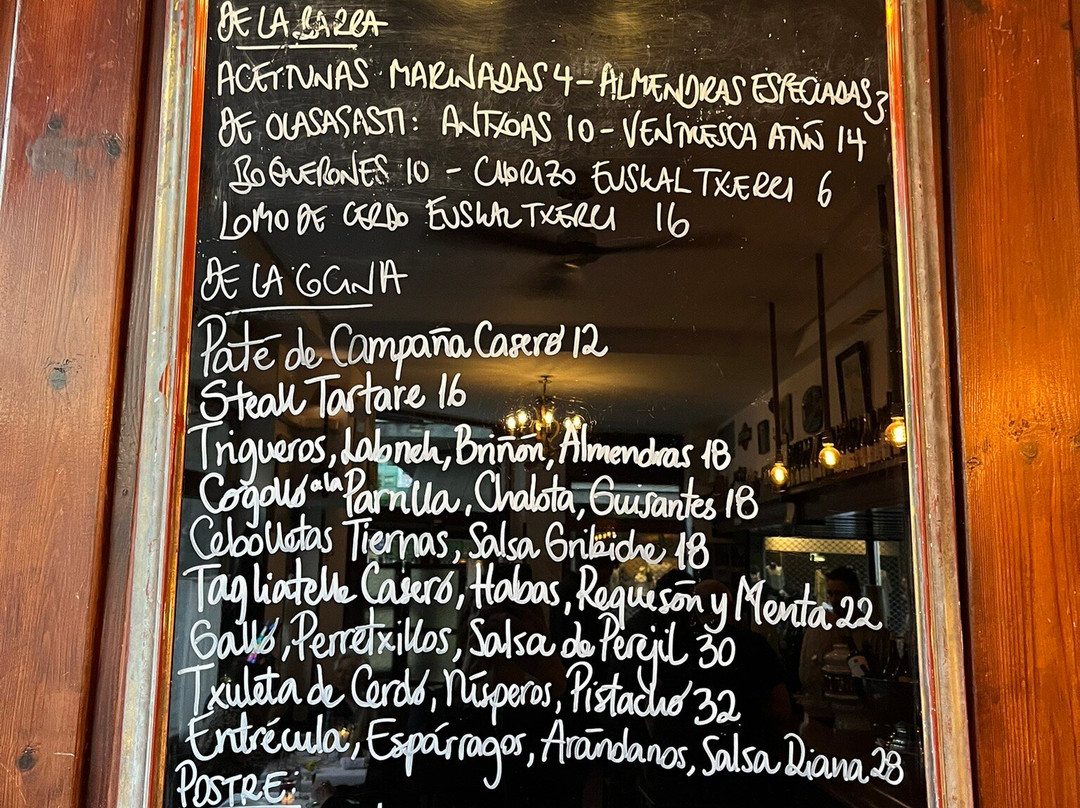 DE LA BARRA
ACEITUNAS MARINADAS 4 - ALMENDRAS ESPECIADAS 3
DE OLASAGASTI: ANTXOAS 10 - VENTRESCA ATÚN 14
BOQUERONES 10 - CHORIZO EUSKAL TXERRI 6
LOMO DE CERDO EUSKAL TXERRI 16
DE LA COCINA
Paté de Campaña Casero 12
Steak Tartare 16
Trigueros, Labneh, Briñón, Almendras 18
Cogollo a la Parrilla, Chalota, Guisantes 18
Cebolletas Tiernas, Salsa Gribiche 18
Tagliatelle Casero, Habas, Requesón y Menta 22
Gallo, Perretxillos, Salsa de Perejil 30
Txuleta de Cerdo, Nísperos, Pistacho 32
Entrécula, Espárragos, Arándanos, Salsa Diana 28
POSTRE: